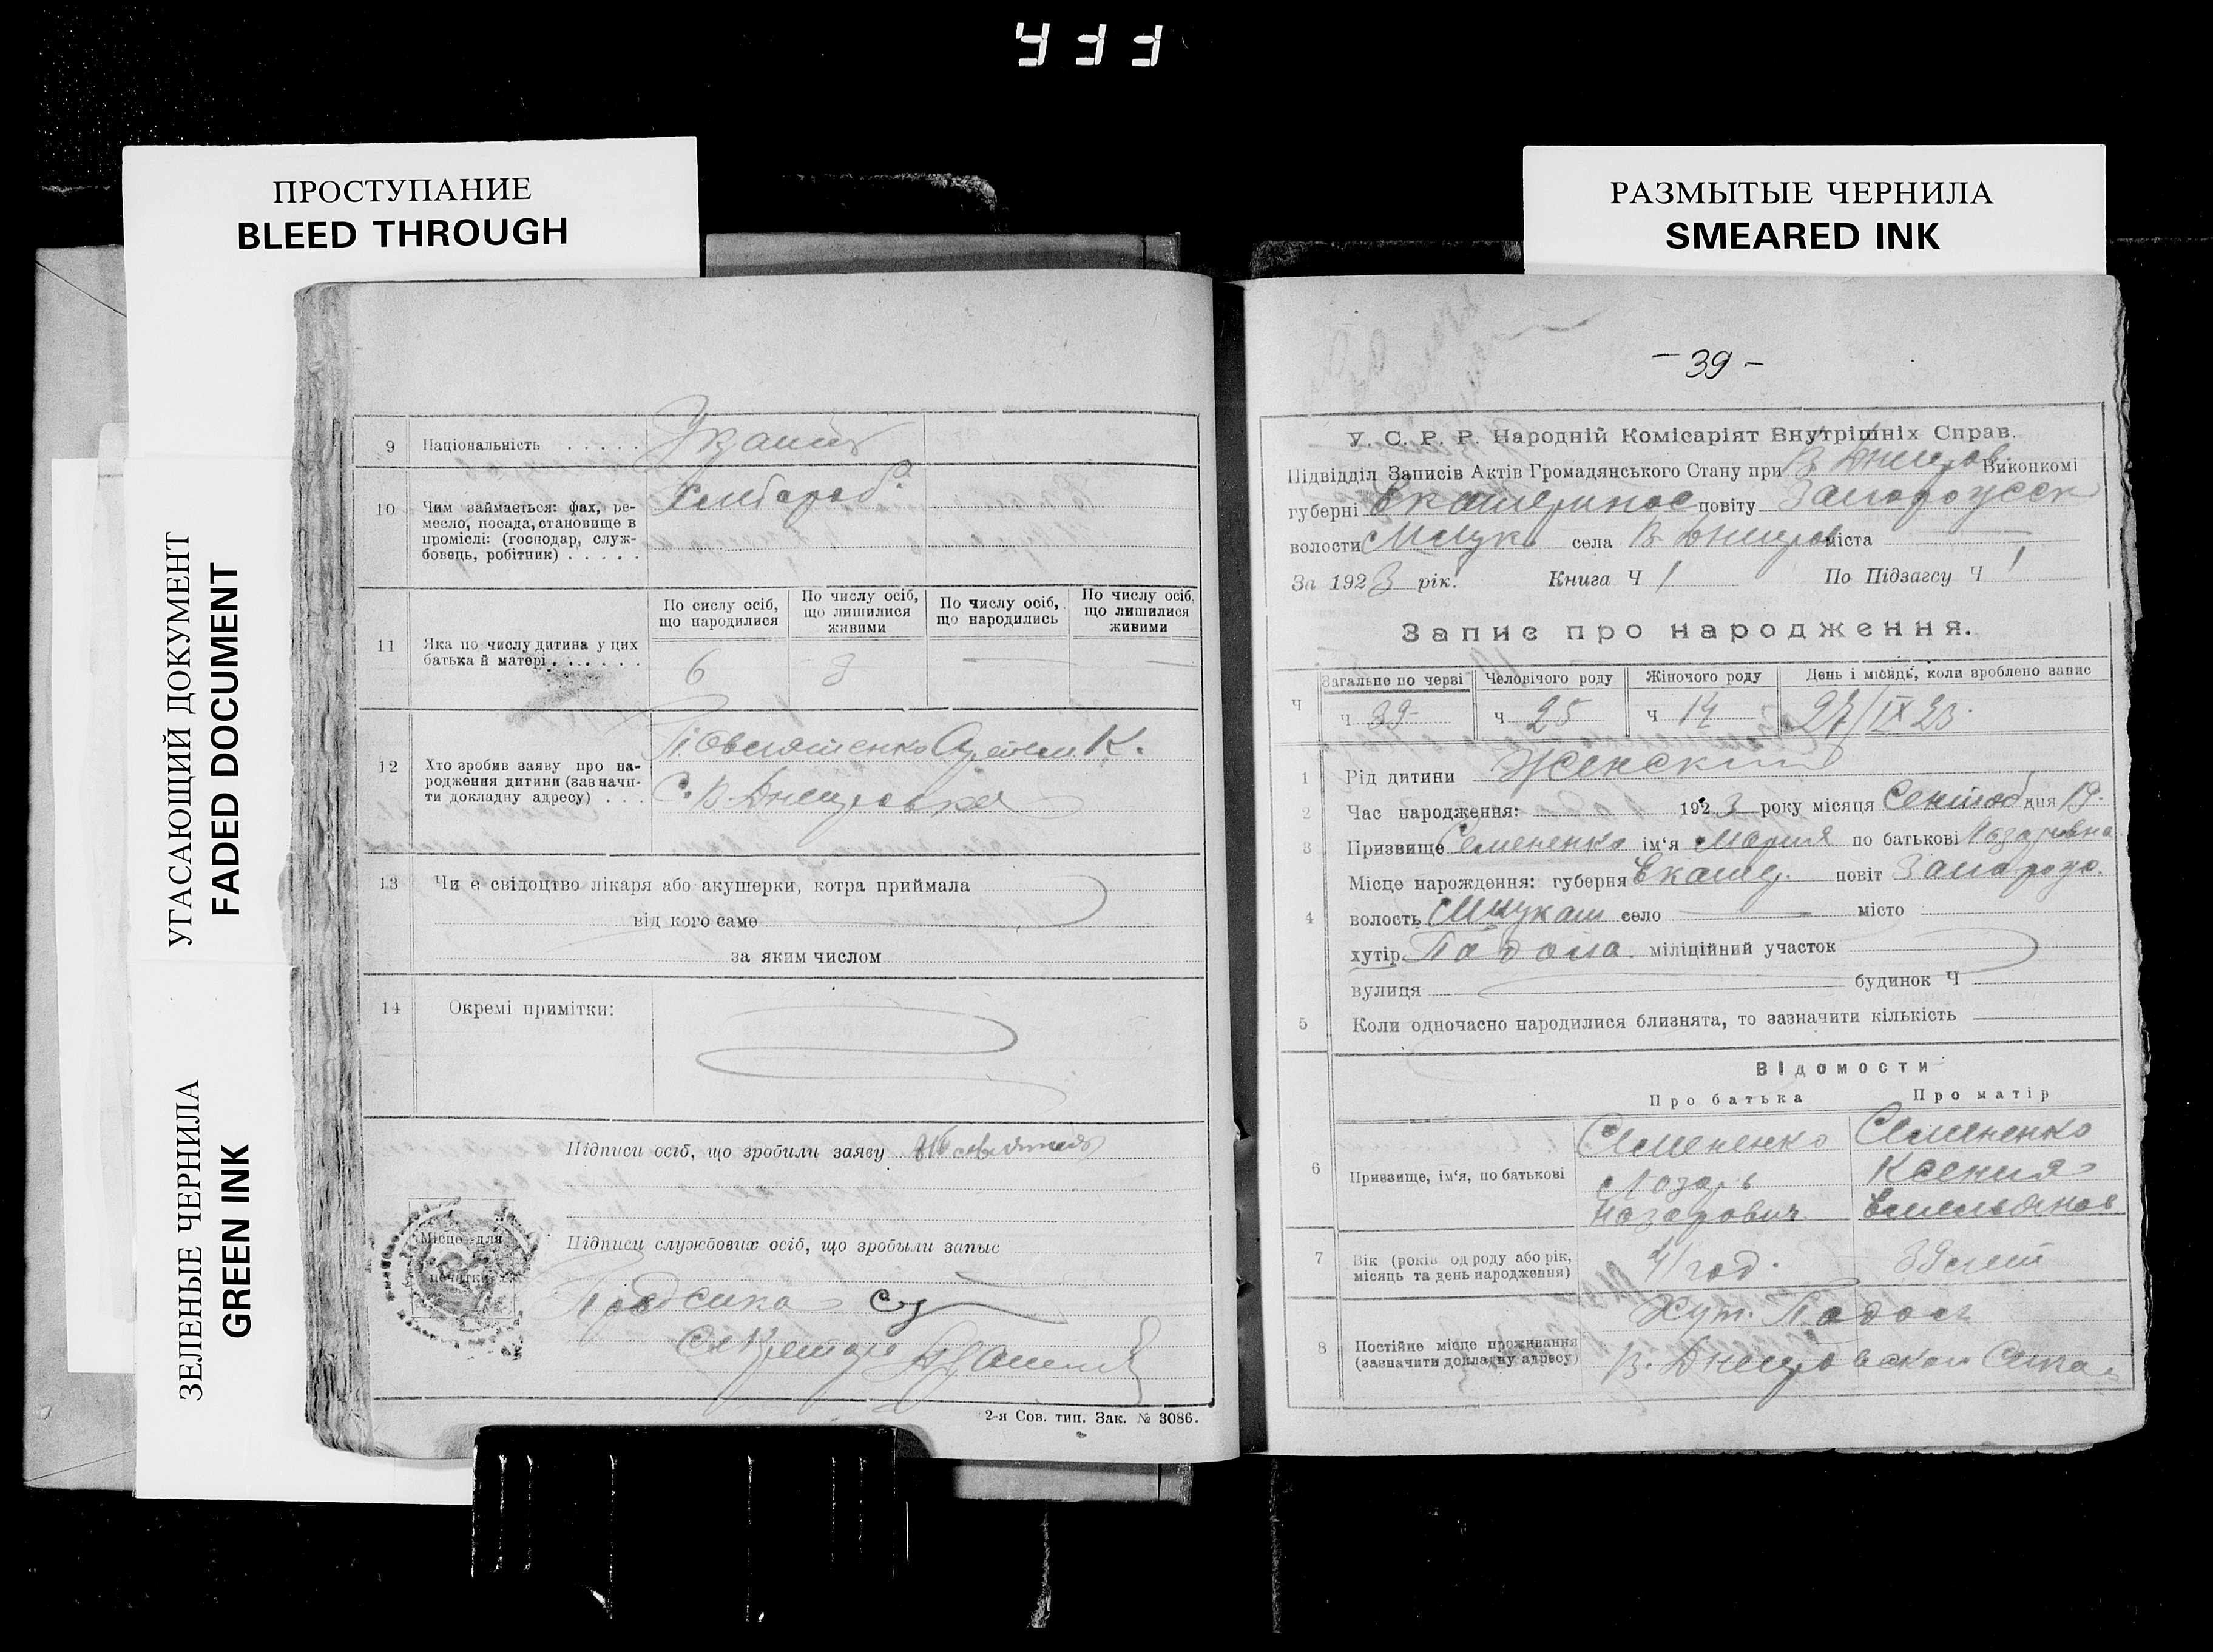 433
ПРОСТУПАНИЕ
BLEED THROUGH
РАЗМЫТЫЕ ЧЕРНИЛА
SMEARED INK
УГАСАЮЩИЙ ДОКУМЕНТ
FADED DOCUMENT
ЗЕЛЕНЫЕ ЧЕРНИЛА
GREEN INK
9 Національність
10 Чим займається: фах, ре-
месло, посада, становище в
промислі: (господар, служ-
бовець, робітник)
Хлебороб
11 Яка по числу дитина у цих
батька й матері
По сислу осіб,
що народилися
По числу осіб,
що лишилися
живими
По числу осіб,
що народились
По числу осіб,
що лишилися
живими
6 3
12 Хто зробив заяву про на-
родження дитини (зазначи-
ти докладну адресу)
К.
С. В. Днепровка
13 Чи є свідоцтво лікаря або акушерки, котра приймала
від кого саме
за яким числом
14 Окремі примітки:
Підписи осіб, що зробили заяву
Місце для
печатки
Підписи службових осіб, що зробыли запыс
Предсика
Секретарь
2-я Сов. тип. Зак. № 3086.
- 39 -
У. С. Р. Р. Народній Комісаріят Внутрішніх Справ.
Підвідділ Записів Актів Громадянського Стану при В. Днепров Виконкомі
губерні Екатеринос повіту
волости села В. Днепров міста
За 1923 рік. Книга Ч 1 По Підзагсу Ч 1
Запис про народження.
Ч
Загальне по черзі Человічого роду Жіночого роду День і місяць, коли зроблено запис
ч 39 ч 25 ч 14 27/IX 23.
1 Рід дитини Женский
2 Час народження: 1923 року місяця Сентяб дня 19.
3 Призвище Семененко ім'я Мария по батькові Лазаревна
4 Місце нарождення: губерня Екате. повіт Запорож.
волость село місто
хутір міліційний участок
вулиця будинок Ч
5 Коли одночасно народилися близнята, то зазначити кількість
Відомости
Про батька Про матір
6 Призвище, ім'я, по батькові
Семененко Семененко
Лозарь Ксения
Назарович Емельянов
7 Вік (років од роду або рік,
місяць та день народження)
41 год. 39 лет
8 Постійне місце проживання
(зазначити докладну адресу)
Хут.
В. Днепровская